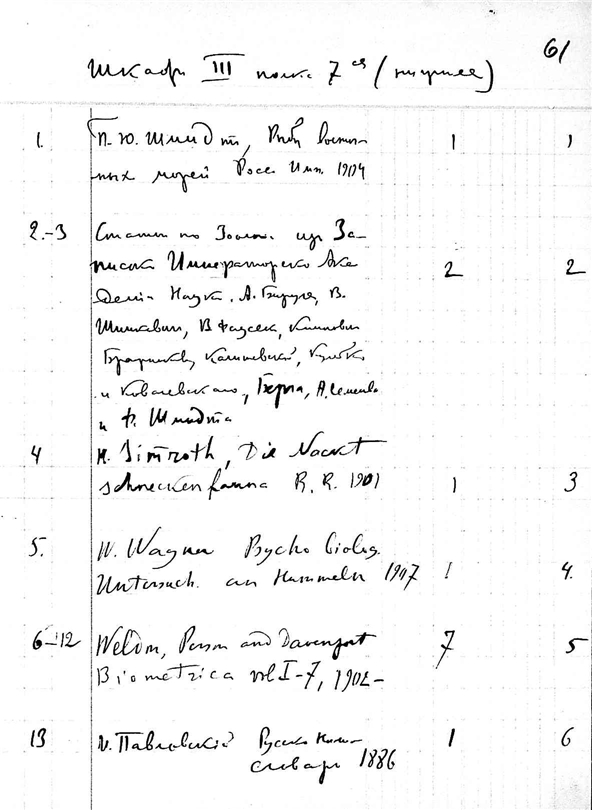 61
Шкафъ III полка 7ая (нижняя)
1. П. Ю. Шмидтъ, Рыбы восточ- 1 1
ныхъ морей Росс. Имп. 1904
2-3 Статьи по Зоолог. изъ За-
писокъ Императорско Ака 2 2
демiи Наукъ. А. Бируля, В.
Шимкевич, В Фаусек, Книпович
Браунера,
и Ковалевскаго, Берга, А. Семенова
и Ф. Шмидта
4 H. Simroth, Die Nackt
schneckenfauna R. R. 1901 1 3
5. W. Wagner Psycho biolog.
Untersuch. an Hummeln 1907 1 4.
6-12 Weldon, Pearson and Davenport 7 5
Biometrica vol I-7, 1902-
13 И. Павловскiй Русско Нѣм- 1 6
словарь 1886